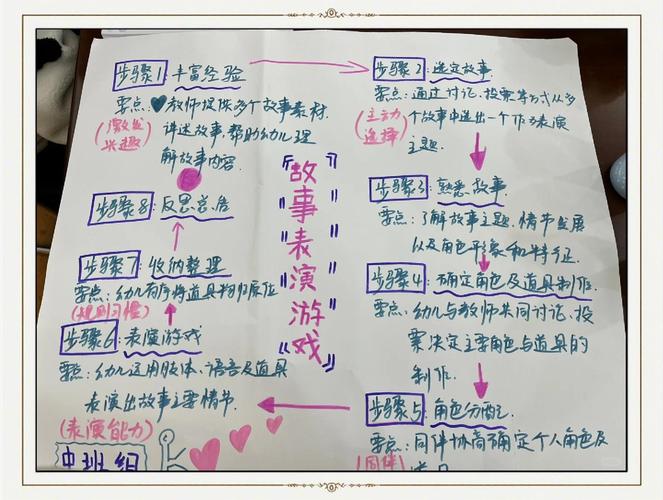 步骤1：丰富经验
要点：教师提供多个故事素材.
讲述故事，帮助幼儿理
解故事内容.
(激发
兴趣)
步骤2：选定故事.
要点：通过讨论、投票等方式从多
个故事中选出一个作为表演
主题.
(主动
选择)
步骤3：熟悉故事.
要点：了解故事主题.情节发展
以及角色形象和特征.
步骤4：确定角色及道具制作.
要点：幼儿与教师共同讨论、投
票决定主要角色与道具的
制作.
步骤5：角色分配.
要点：同伴协商确定个人角色及
(同伴
步骤6：表演游戏
要点：幼儿运用肢体、语言及道具
表演出故事主要情节.
(表演能力)
步骤7：收纳整理
要点：幼儿有序将道具物归原位
(规则习惯)
步骤8：反思总结
『故事表演游戏』
中班组